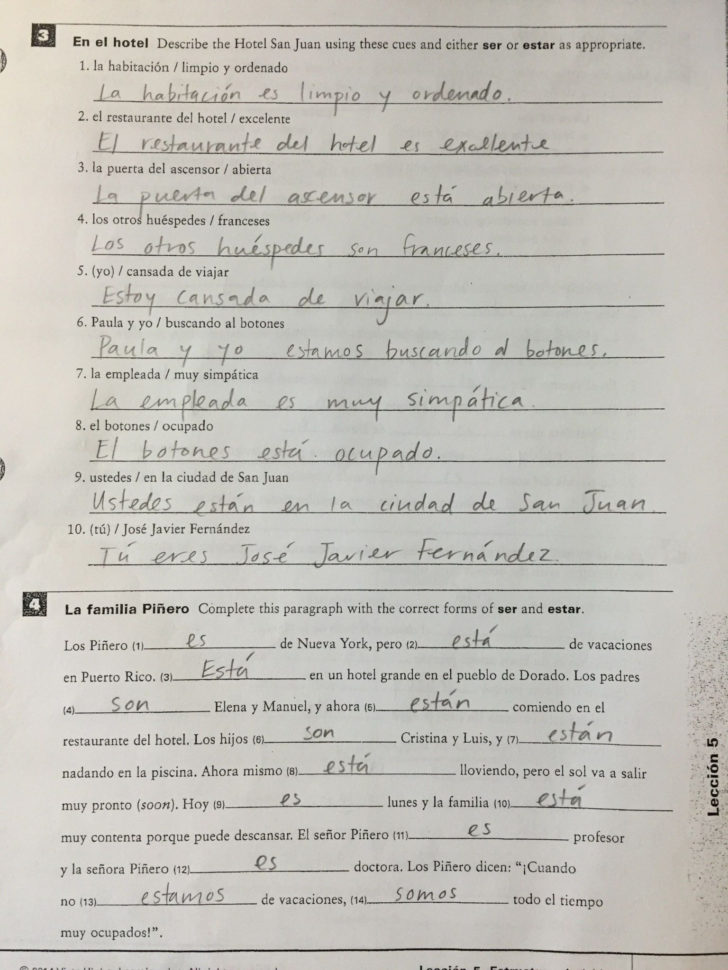 3 En el hotel Describe the Hotel San Juan using these cues and either ser or estar as appropriate.
1. la habitación / limpio y ordenado
La habitación es limpio y ordenado.
2. el restaurante del hotel / excelente
El restaurante del hotel es excellente
3. la puerta del ascensor / abierta
La puerta del ascensor está abierta.
4. los otros huéspedes / franceses
Los otros huéspedes son franceses.
5. (yo) / cansada de viajar
Estoy cansada de viajar.
6. Paula y yo / buscando al botones
Paula y yo estamos buscando al botones.
7. la empleada / muy simpática
La empleada es muy simpática.
8. el botones / ocupado
El botones está ocupado.
9. ustedes / en la ciudad de San Juan
Ustedes están en la ciudad de San Juan
10. (tú) / José Javier Fernández
Tú eres José Javier Fernández
4 La familia Piñero Complete this paragraph with the correct forms of ser and estar.
Los Piñero (1) es de Nueva York, pero (2) está de vacaciones
en Puerto Rico. (3) Está en un hotel grande en el pueblo de Dorado. Los padres
(4) son Elena y Manuel, y ahora (5) están comiendo en el
restaurante del hotel. Los hijos (6) son Cristina y Luis, y (7) están
nadando en la piscina. Ahora mismo (8) está lloviendo, pero el sol va a salir
muy pronto (soon). Hoy (9) es lunes y la familia (10) está
muy contenta porque puede descansar. El señor Piñero (11) es profesor
y la señora Piñero (12) es doctora. Los Piñero dicen: “¡Cuando
no (13) estamos de vacaciones, (14) somos todo el tiempo
muy ocupados!”.
Lección 5